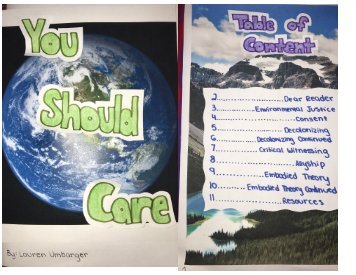 You
Should
Care
By: Lauren Umbarger
Table of
Content
2...............Dear Reader
3...............Environmental Justice
4...............Consent
5...............Decolonizing
6...............Decolonizing Continued
7...............Critical Witnessing
8...............Allyship
9...............Embodied Theory
10...............Embodied Theory Continued
11...............Resources